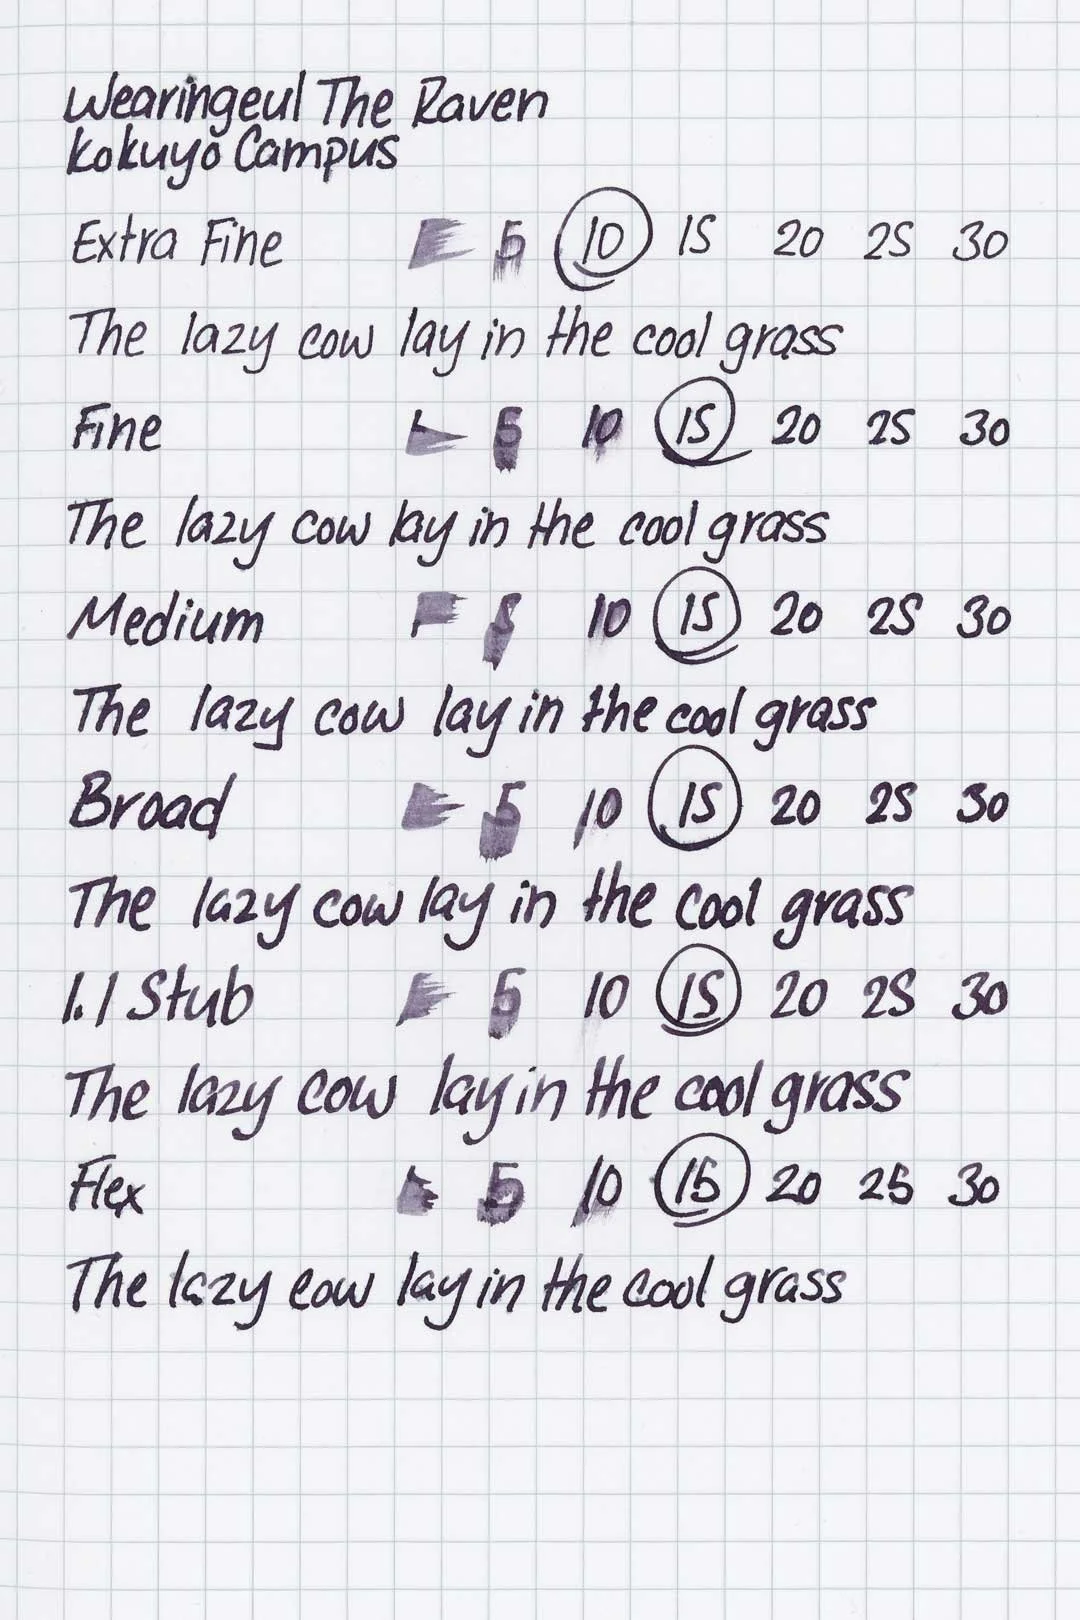 Wearingeul The Raven
Kokuyo Campus
Extra Fine 5 10 15 20 25 30
The lazy cow lay in the cool grass
Fine 5 10 15 20 25 30
The lazy cow lay in the cool grass
Medium 5 10 15 20 25 30
The lazy cow lay in the cool grass
Broad 5 10 15 20 25 30
The lazy cow lay in the cool grass
1.1 Stub 5 10 15 20 25 30
The lazy cow lay in the cool grass
Flex 5 10 15 20 25 30
The lazy cow lay in the cool grass